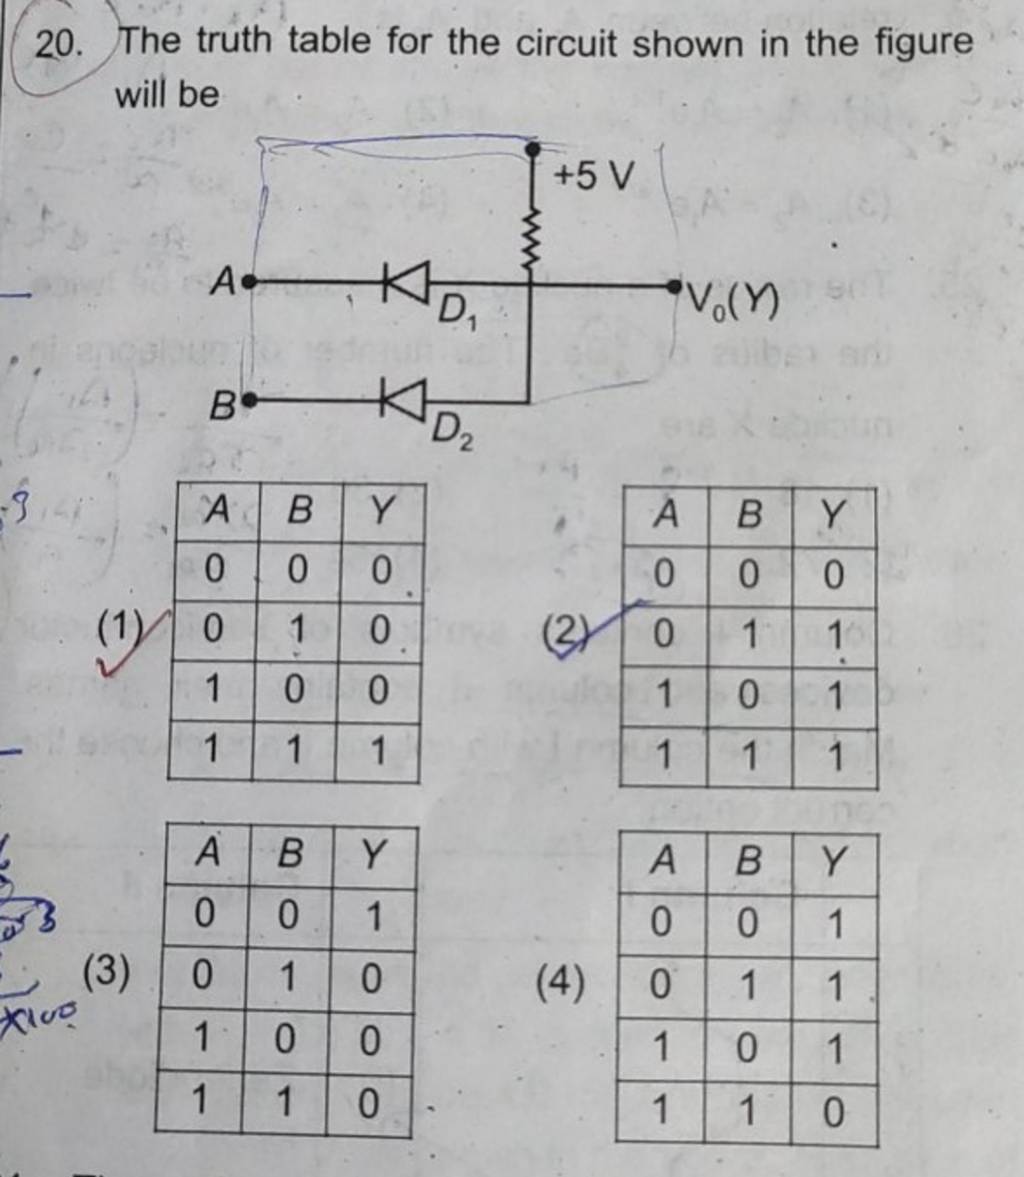 20. The truth table for the circuit shown in the figure
will be
+5 V
A
D₁
V₀(Y)
B
D₂
(1)
A B Y
0 0 0
0 1 0
1 0 0
1 1 1
(2)
A B Y
0 0 0
0 1 1
1 0 1
1 1 1
(3)
A B Y
0 0 1
0 1 0
1 0 0
1 1 0
(4)
A B Y
0 0 1
0 1 1
1 0 1
1 1 0